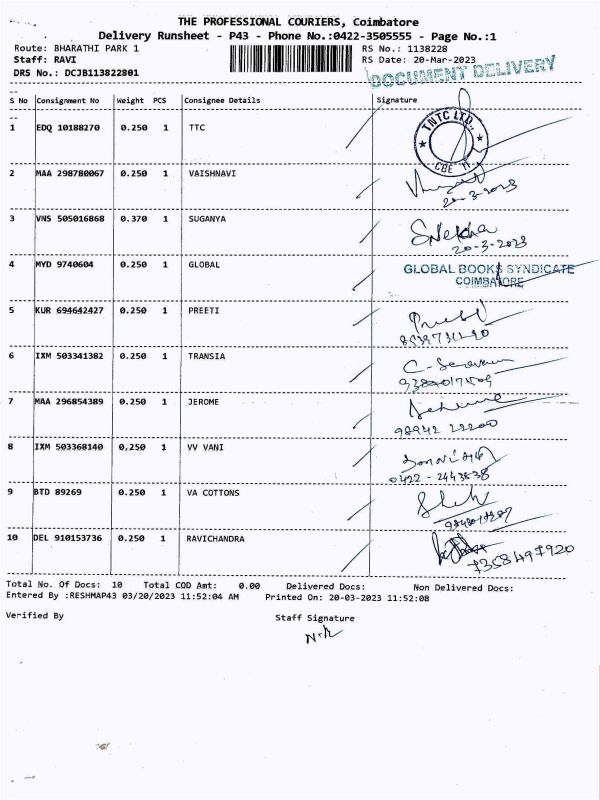 THE PROFESSIONAL COURIERS, Coimbatore
Delivery Runsheet - P43 - Phone No.:0422-3505555 - Page No.:1
Route: BHARATHI PARK 1 RS No.: 1138228
Staff: RAVI RS Date: 20-Mar-2023
DRS No.: DCJB113822801 DOCUMENT DELIVERY
S No Consignment No Weight PCS Consignee Details Signature
1 EDQ 10188270 0.250 1 TTC TNTC LTD., CBE 11
2 MAA 298780067 0.250 1 VAISHNAVI
20-3-2023
3 VNS 505016868 0.370 1 SUGANYA Snekha
20-3-2023
4 MYD 9740604 0.250 1 GLOBAL GLOBAL BOOKS SYNDICATE
COIMBATORE
5 KUR 694642427 0.250 1 PREETI
6 IXM 503341382 0.250 1 TRANSIA
7 MAA 296854389 0.250 1 JEROME
98942 22200
8 IXM 503368140 0,250 1 VV VANI
0422 - 2443838
9 BTD 89269 0.250 1 VA COTTONS
10 DEL 910153736 0.250 1 RAVICHANDRA
7358497920
Total No. Of Docs: 10 Total COD Amt: 0.00 Delivered Docs: Non Delivered Docs:
Entered By :RESHMAP43 03/20/2023 11:52:04 AM Printed On: 20-03-2023 11:52:08
Verified By Staff Signature